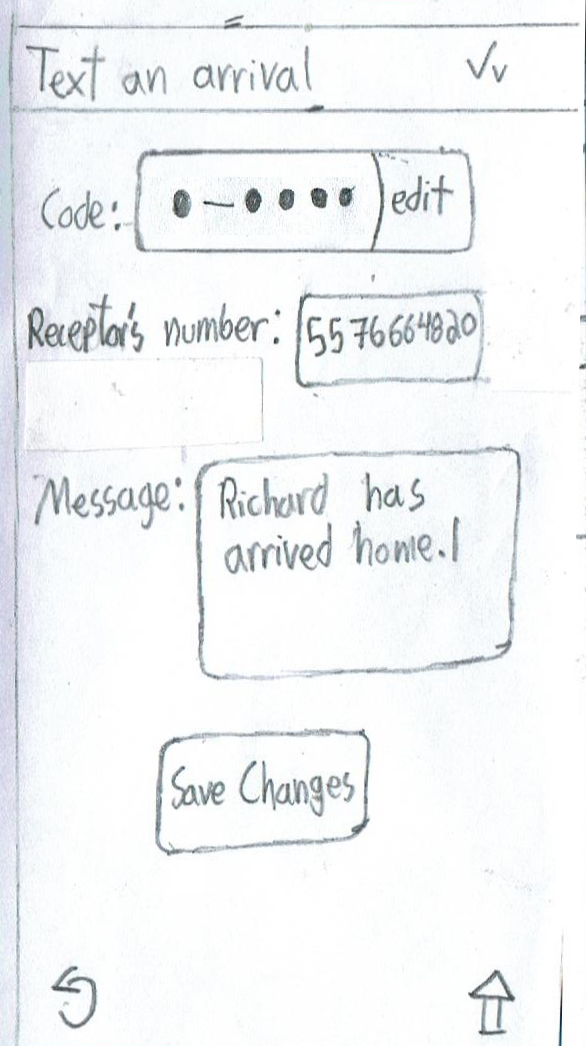 Text an arrival
Code: ●–●●●● edit
Receptor's number: 5576664820
Message: Richard has
arrived home.
Save Changes